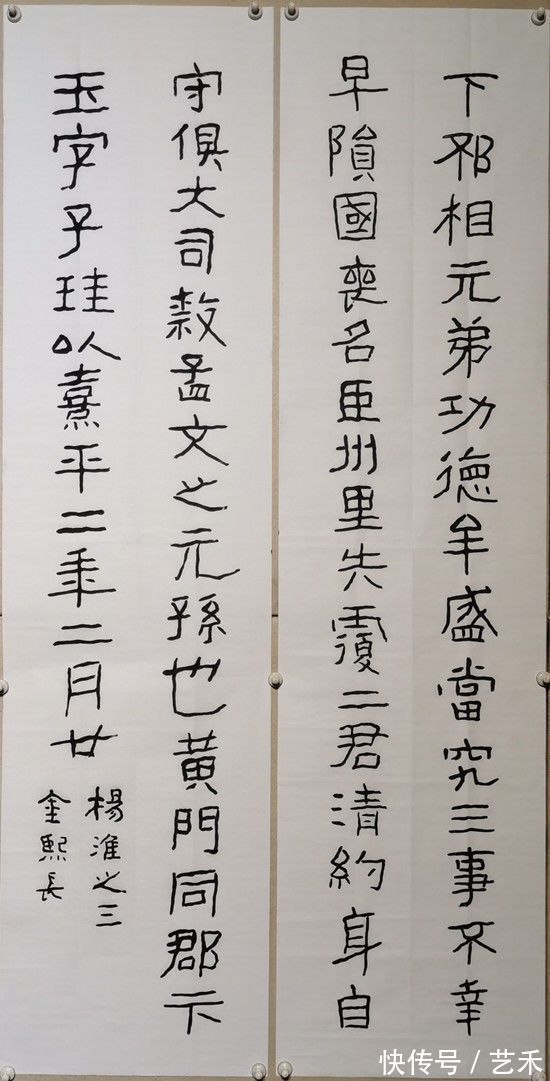 下邳相元弟功德牟盛當究三事不幸
早隕國喪名臣州里失覆二君清約身自
守俱大司隸孟文之元孫也黃門同郡卞
玉字子珪以熹平二年二月廿
楊淮之三
金熙長
快传号 / 艺禾